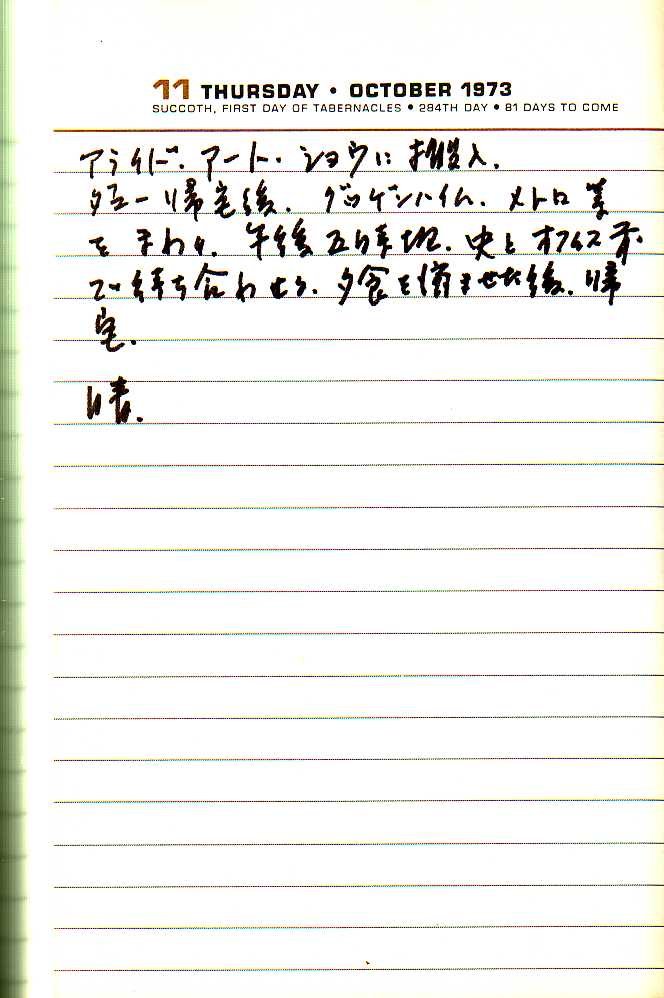 11 THURSDAY • OCTOBER 1973
SUCCOTH, FIRST DAY OF TABERNACLES • 284TH DAY • 81 DAYS TO COME
アライド・アート・ショウに搬入.
一帰宅後、グッゲンハイム、メトロ等
をまわり、午後五時班、史とオフィス前
で待ち合わせる、夕食を済ませた後、帰
宅.
晴.